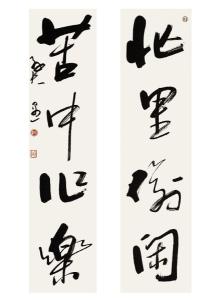 忙里偷闲
苦中作樂